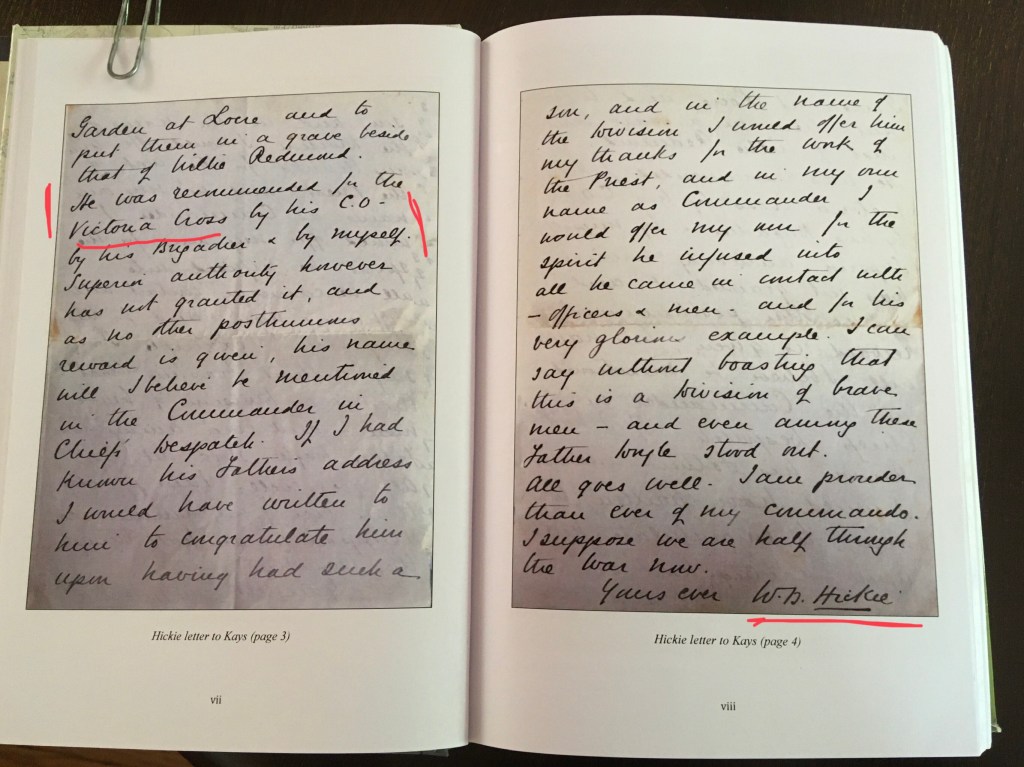 Garden at Locre and to
put them in a grave beside
that of Willie Redmond.
He was recommended for the
Victoria Cross by his C.O-
by his Brigadier & by myself.
Superior authority however
has not granted it, and
as no other posthumous
reward is given, his name
will I believe be mentioned
in the Commander in
Chiefs Despatch. If I had
known his Fathers address
I would have written to
him to congratulate him
upon having had such a
Hickie letter to Kays (page 3)
vii
son, and in the name of
the Division I would offer him
my thanks for the work of
the Priest, and in my own
name as Commander I
would offer my own for the
spirit he infused into
all he came in contact with
- officers & men - and for his
very glorious example. I can
say without boasting that
this is a Division of brave
men - and even among these
Father Doyle stood out.
All goes well. I am prouder
than ever of my commando.
I suppose we are half through
the War now.
Yours ever W.B. Hickie
Hickie letter to Kays (page 4)
viii